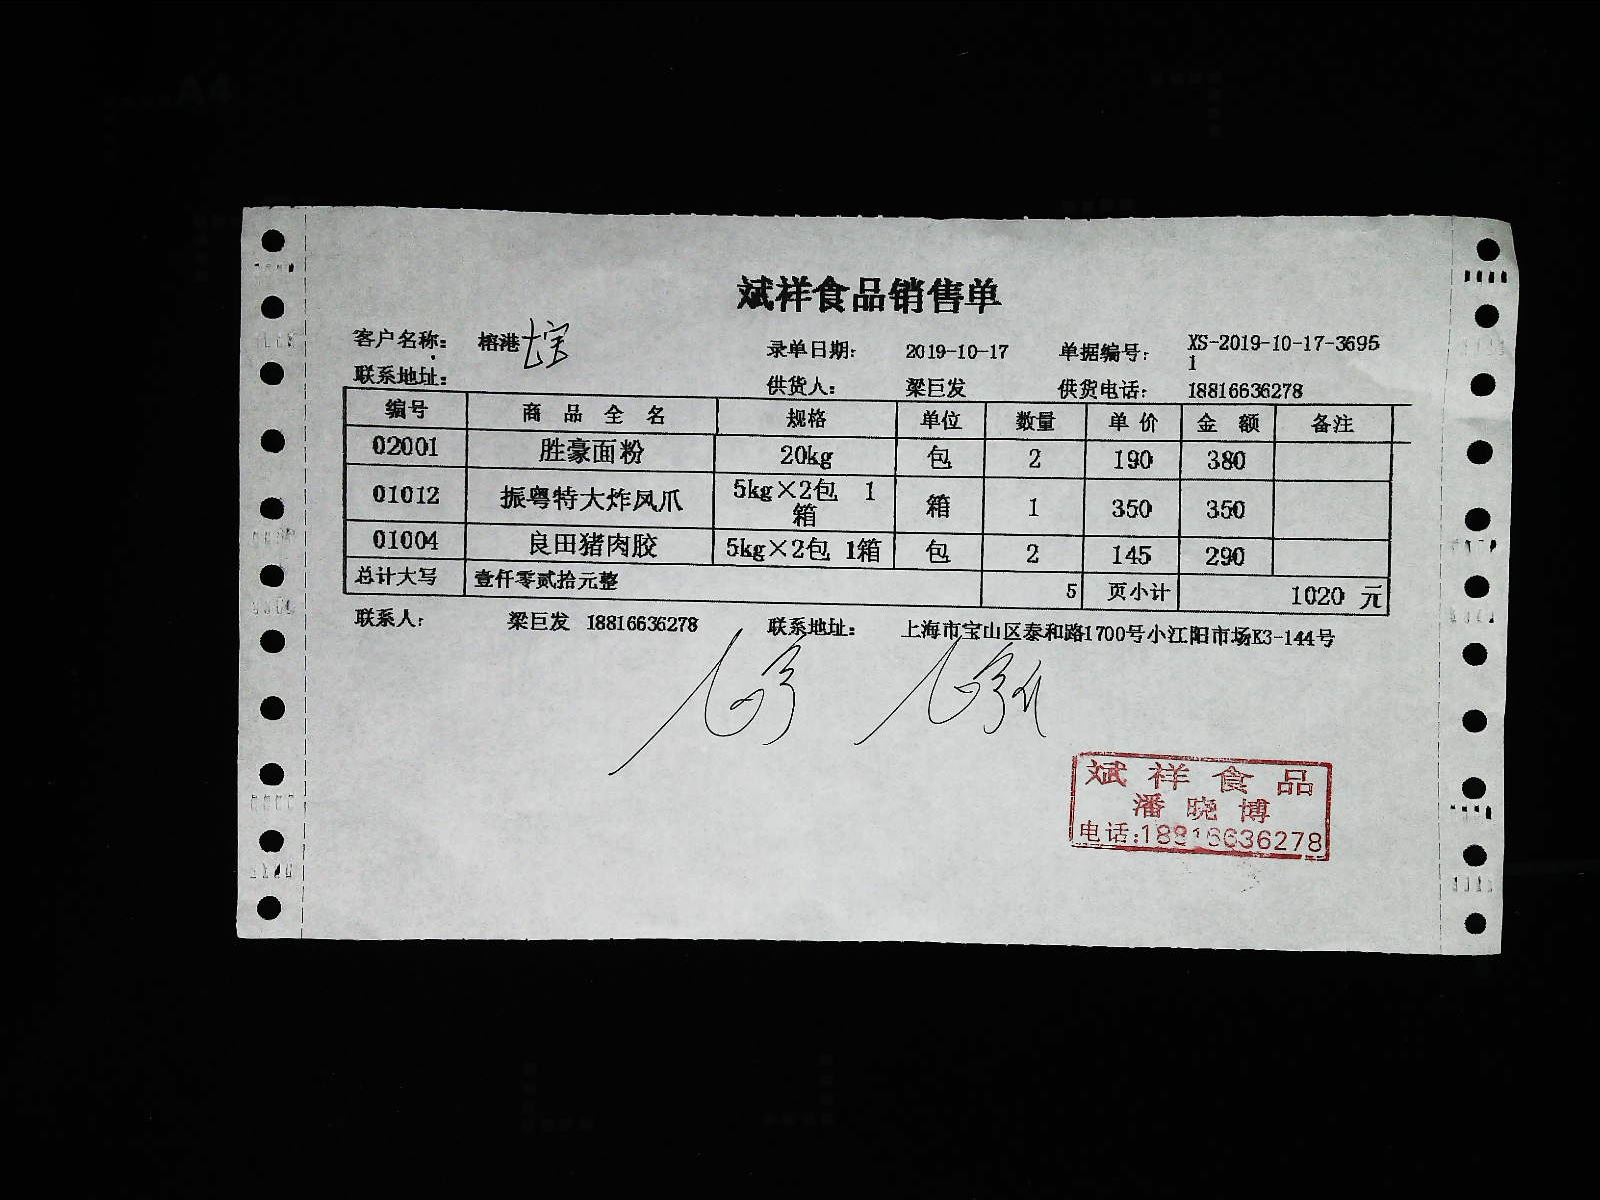 斌祥食品销售单
客户名称： 榕港 录单日期： 2019-10-17 单据编号： XS-2019-10-17-3695
1
联系地址： 供货人： 梁巨发 供货电话： 18816636278
编号 商 品 全 名 规格 单位 数量 单 价 金 额 备注
02001 胜豪面粉 20kg 包 2 190 380
01012 振粤特大炸凤爪 5kg×2包 1箱 箱 1 350 350
01004 良田猪肉胶 5kg×2包 1箱 包 2 145 290
总计大写 壹仟零贰拾元整 5 页小计 1020 元
联系人： 梁巨发 18816636278 联系地址： 上海市宝山区泰和路1700号小江阳市场K3-144号
斌祥食品
潘晓博
电话:18816636278